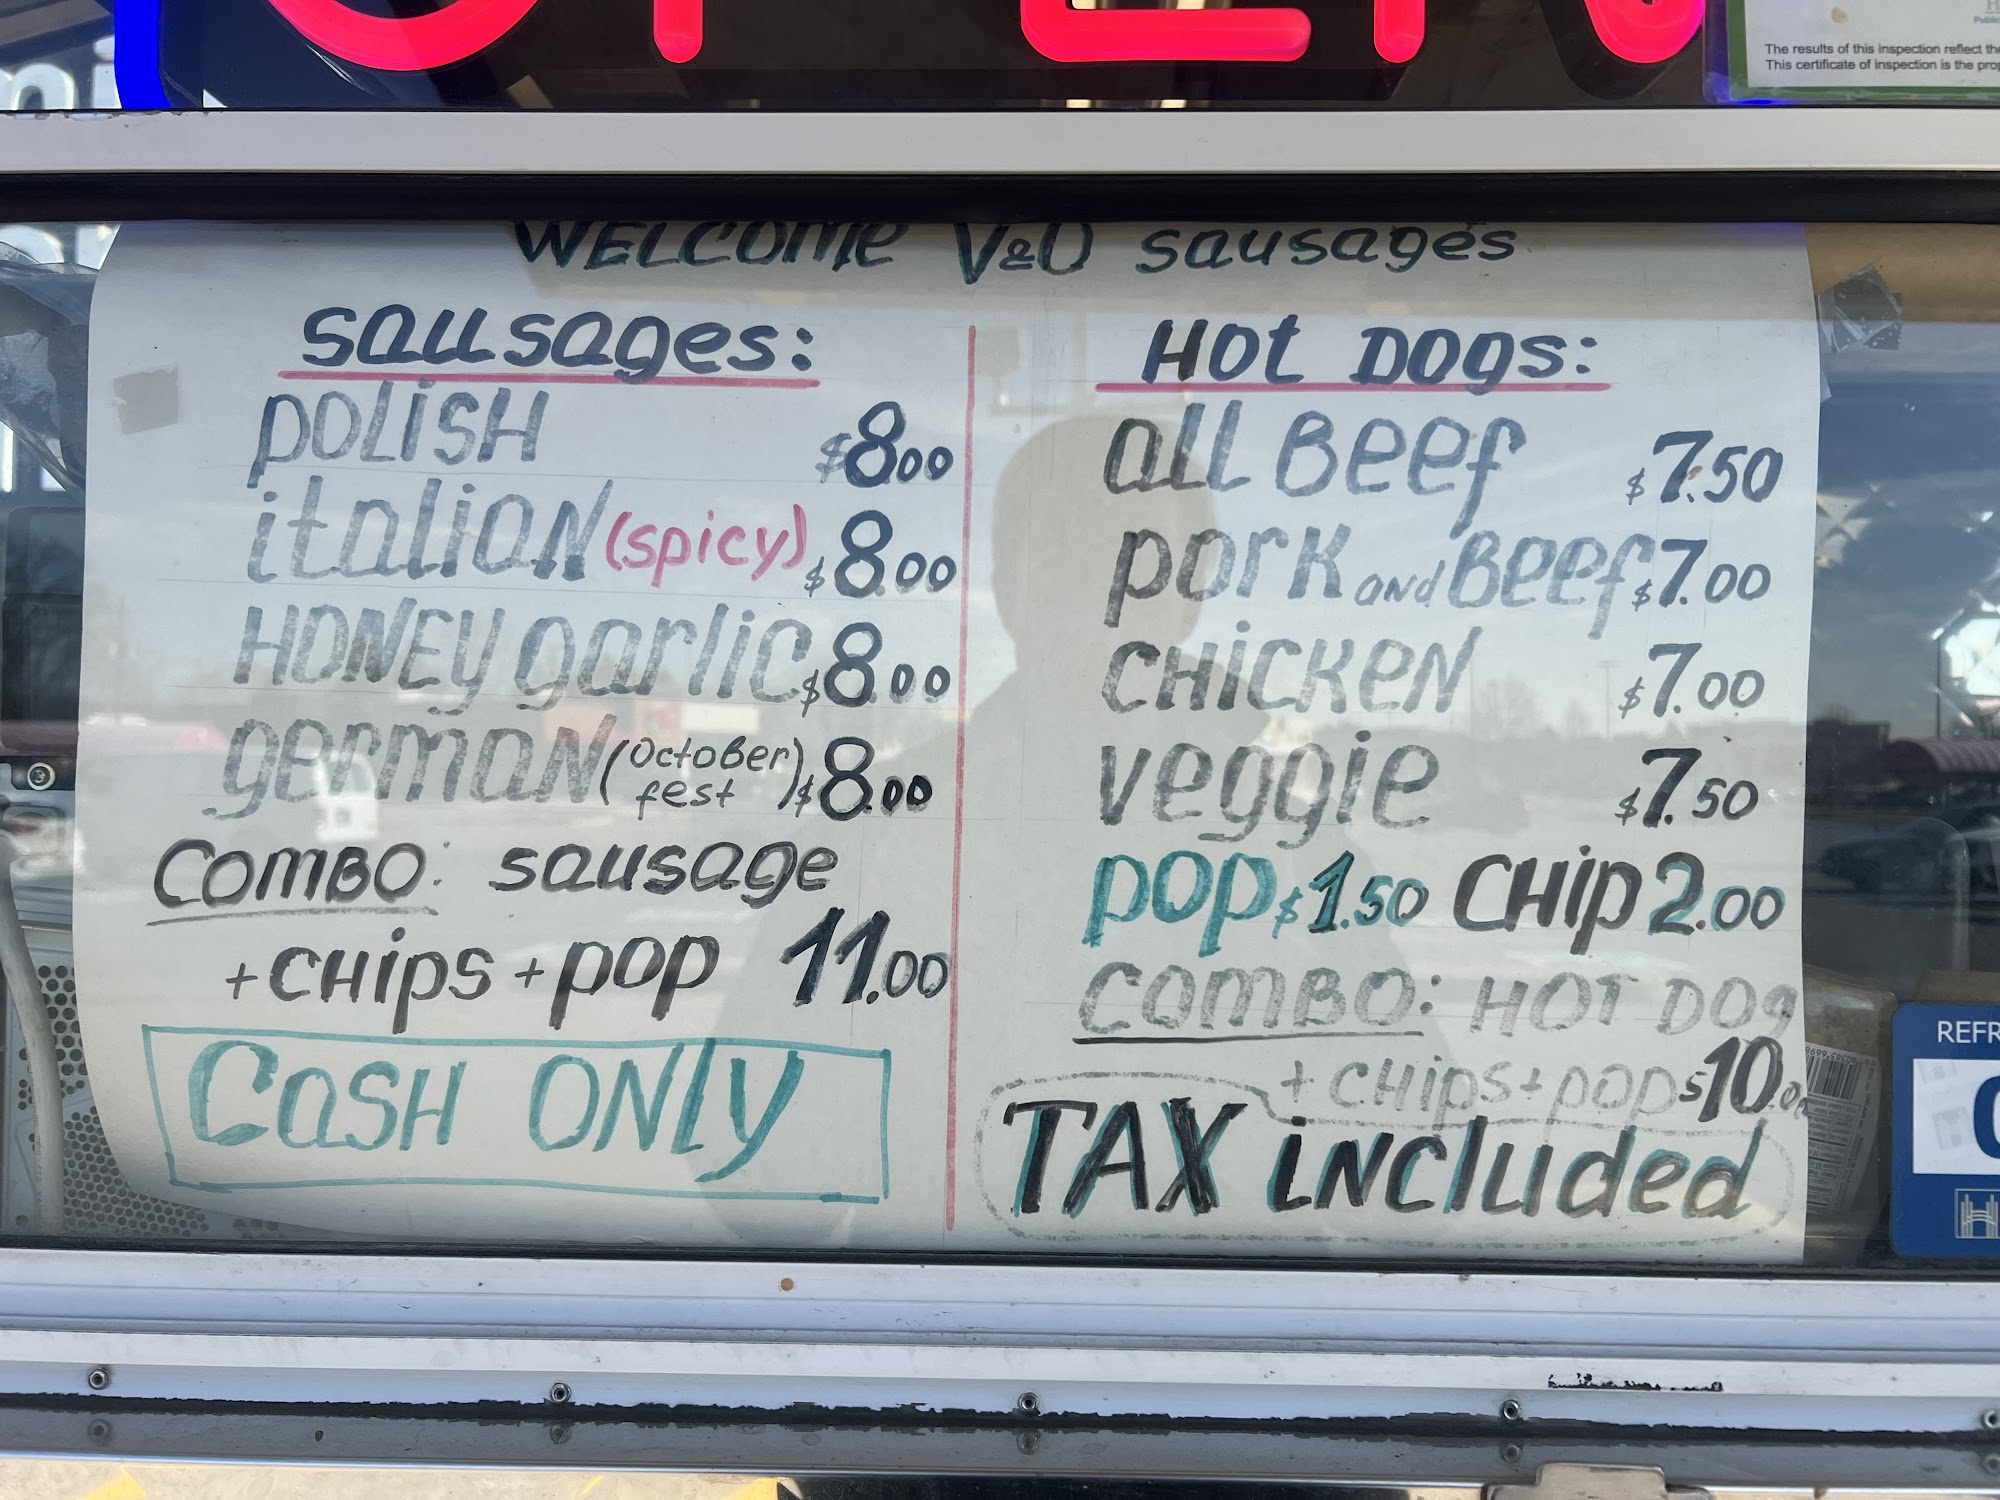 OPEN
The results of this inspection reflect the
This certificate of inspection is the
WELCOME V&O sausages
sausages:
POLiSH $8.00
italian (spicy) $8.00
HONEY garlic $8.00
german (OctoBer fest) $8.00
COMBO: sausage
+ CHips + pop 11.00
CasH ONLy
HOt DOgs:
all Beef $7.50
pork and Beef $7.00
CHicKeN $7.00
veggie $7.50
pop $1.50 CHip 2.00
COMBO: HOT DOg
+ CHips + pop $10.0
TAX iNcluded
REFR